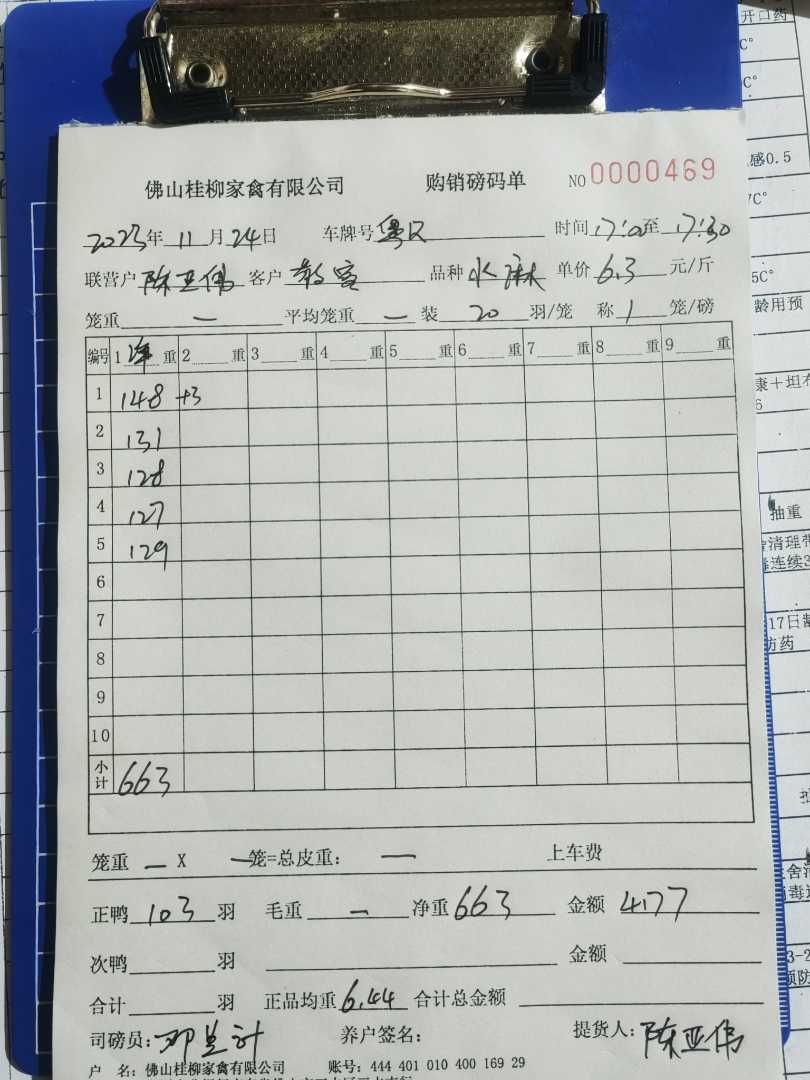 佛山桂柳家禽有限公司 购销磅码单 NO 0000469
2023年 11月 24日 车牌号 粤 时间 17:00至 17:30
联营户 陈亚伟 客户 散客 品种 水麻 单价 6.3 元/斤
笼重 — 平均笼重 — 装 20 羽/笼 称 1 笼/磅
编号 1 净重 2 重 3 重 4 重 5 重 6 重 7 重 8 重 9 重
1 148 +3
2 131
3 128
4 127
5 129
6
7
8
9
10
小计 663
笼重 — X — 笼=总皮重: — 上车费
正鸭 103 羽 毛重 — 净重 663 金额 4177
次鸭 羽 金额
合计 羽 正品均重 6.44 合计总金额
司磅员: 养户签名: 提货人: 陈亚伟
户 名: 佛山桂柳家禽有限公司 账号: 444 401 010 400 169 29
开口药
C°
C°
感0.5
C°
5C°
龄用预
康+坦布
6
抽重
舍清理带
毒连续3
17日龄
防药
舍清
消毒
3-2
预防